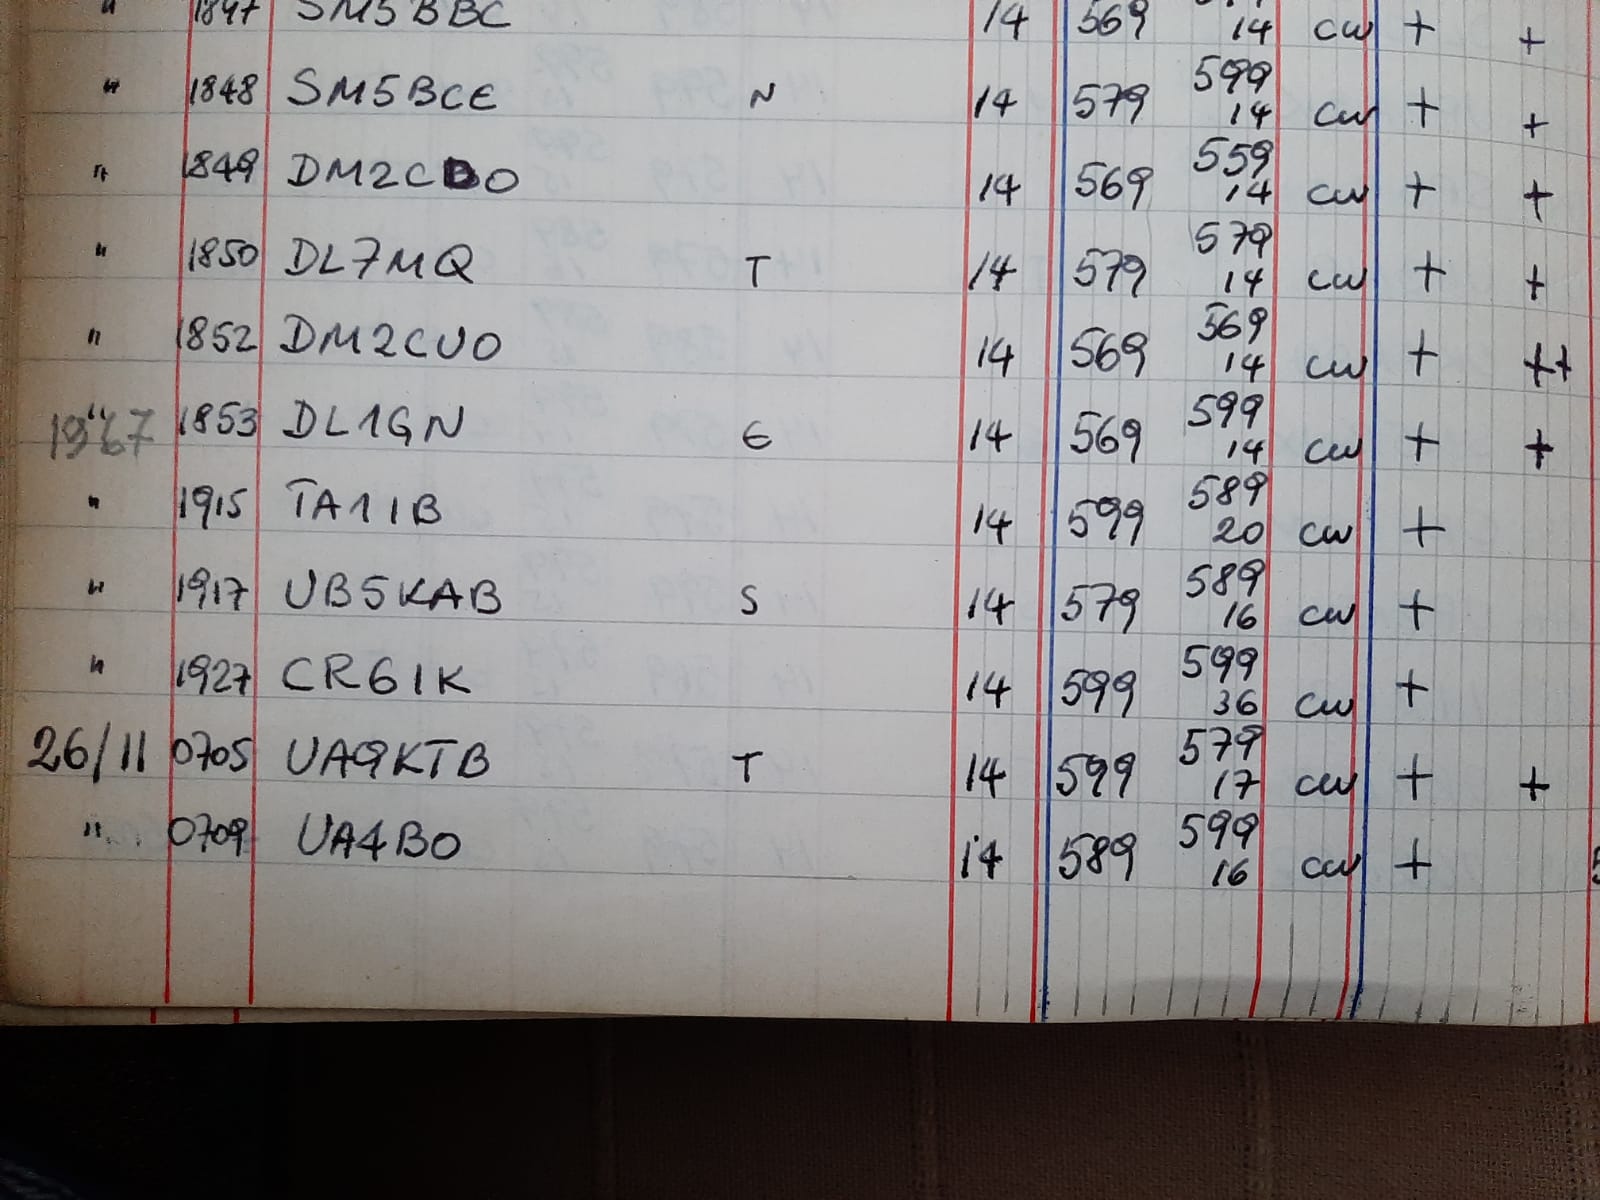 " 1847 SM5BBC 14 569 14 cw + +
" 1848 SM5BCE N 14 579 599 14 cw + +
" 1849 DM2CBO 14 569 559 14 cw + +
" 1850 DL7MQ T 14 579 579 14 cw + +
" 1852 DM2CUO 14 569 569 14 cw + ++
1967 " 1853 DL1GN E 14 569 599 14 cw + +
" 1915 TA1IB 14 599 589 20 cw +
" 1917 UB5KAB S 14 579 589 16 cw +
" 1927 CR6IK 14 599 599 36 cw +
26/11 0705 UA9KTB T 14 599 579 17 cw + +
" 0709 UA4BO 14 589 599 16 cw +